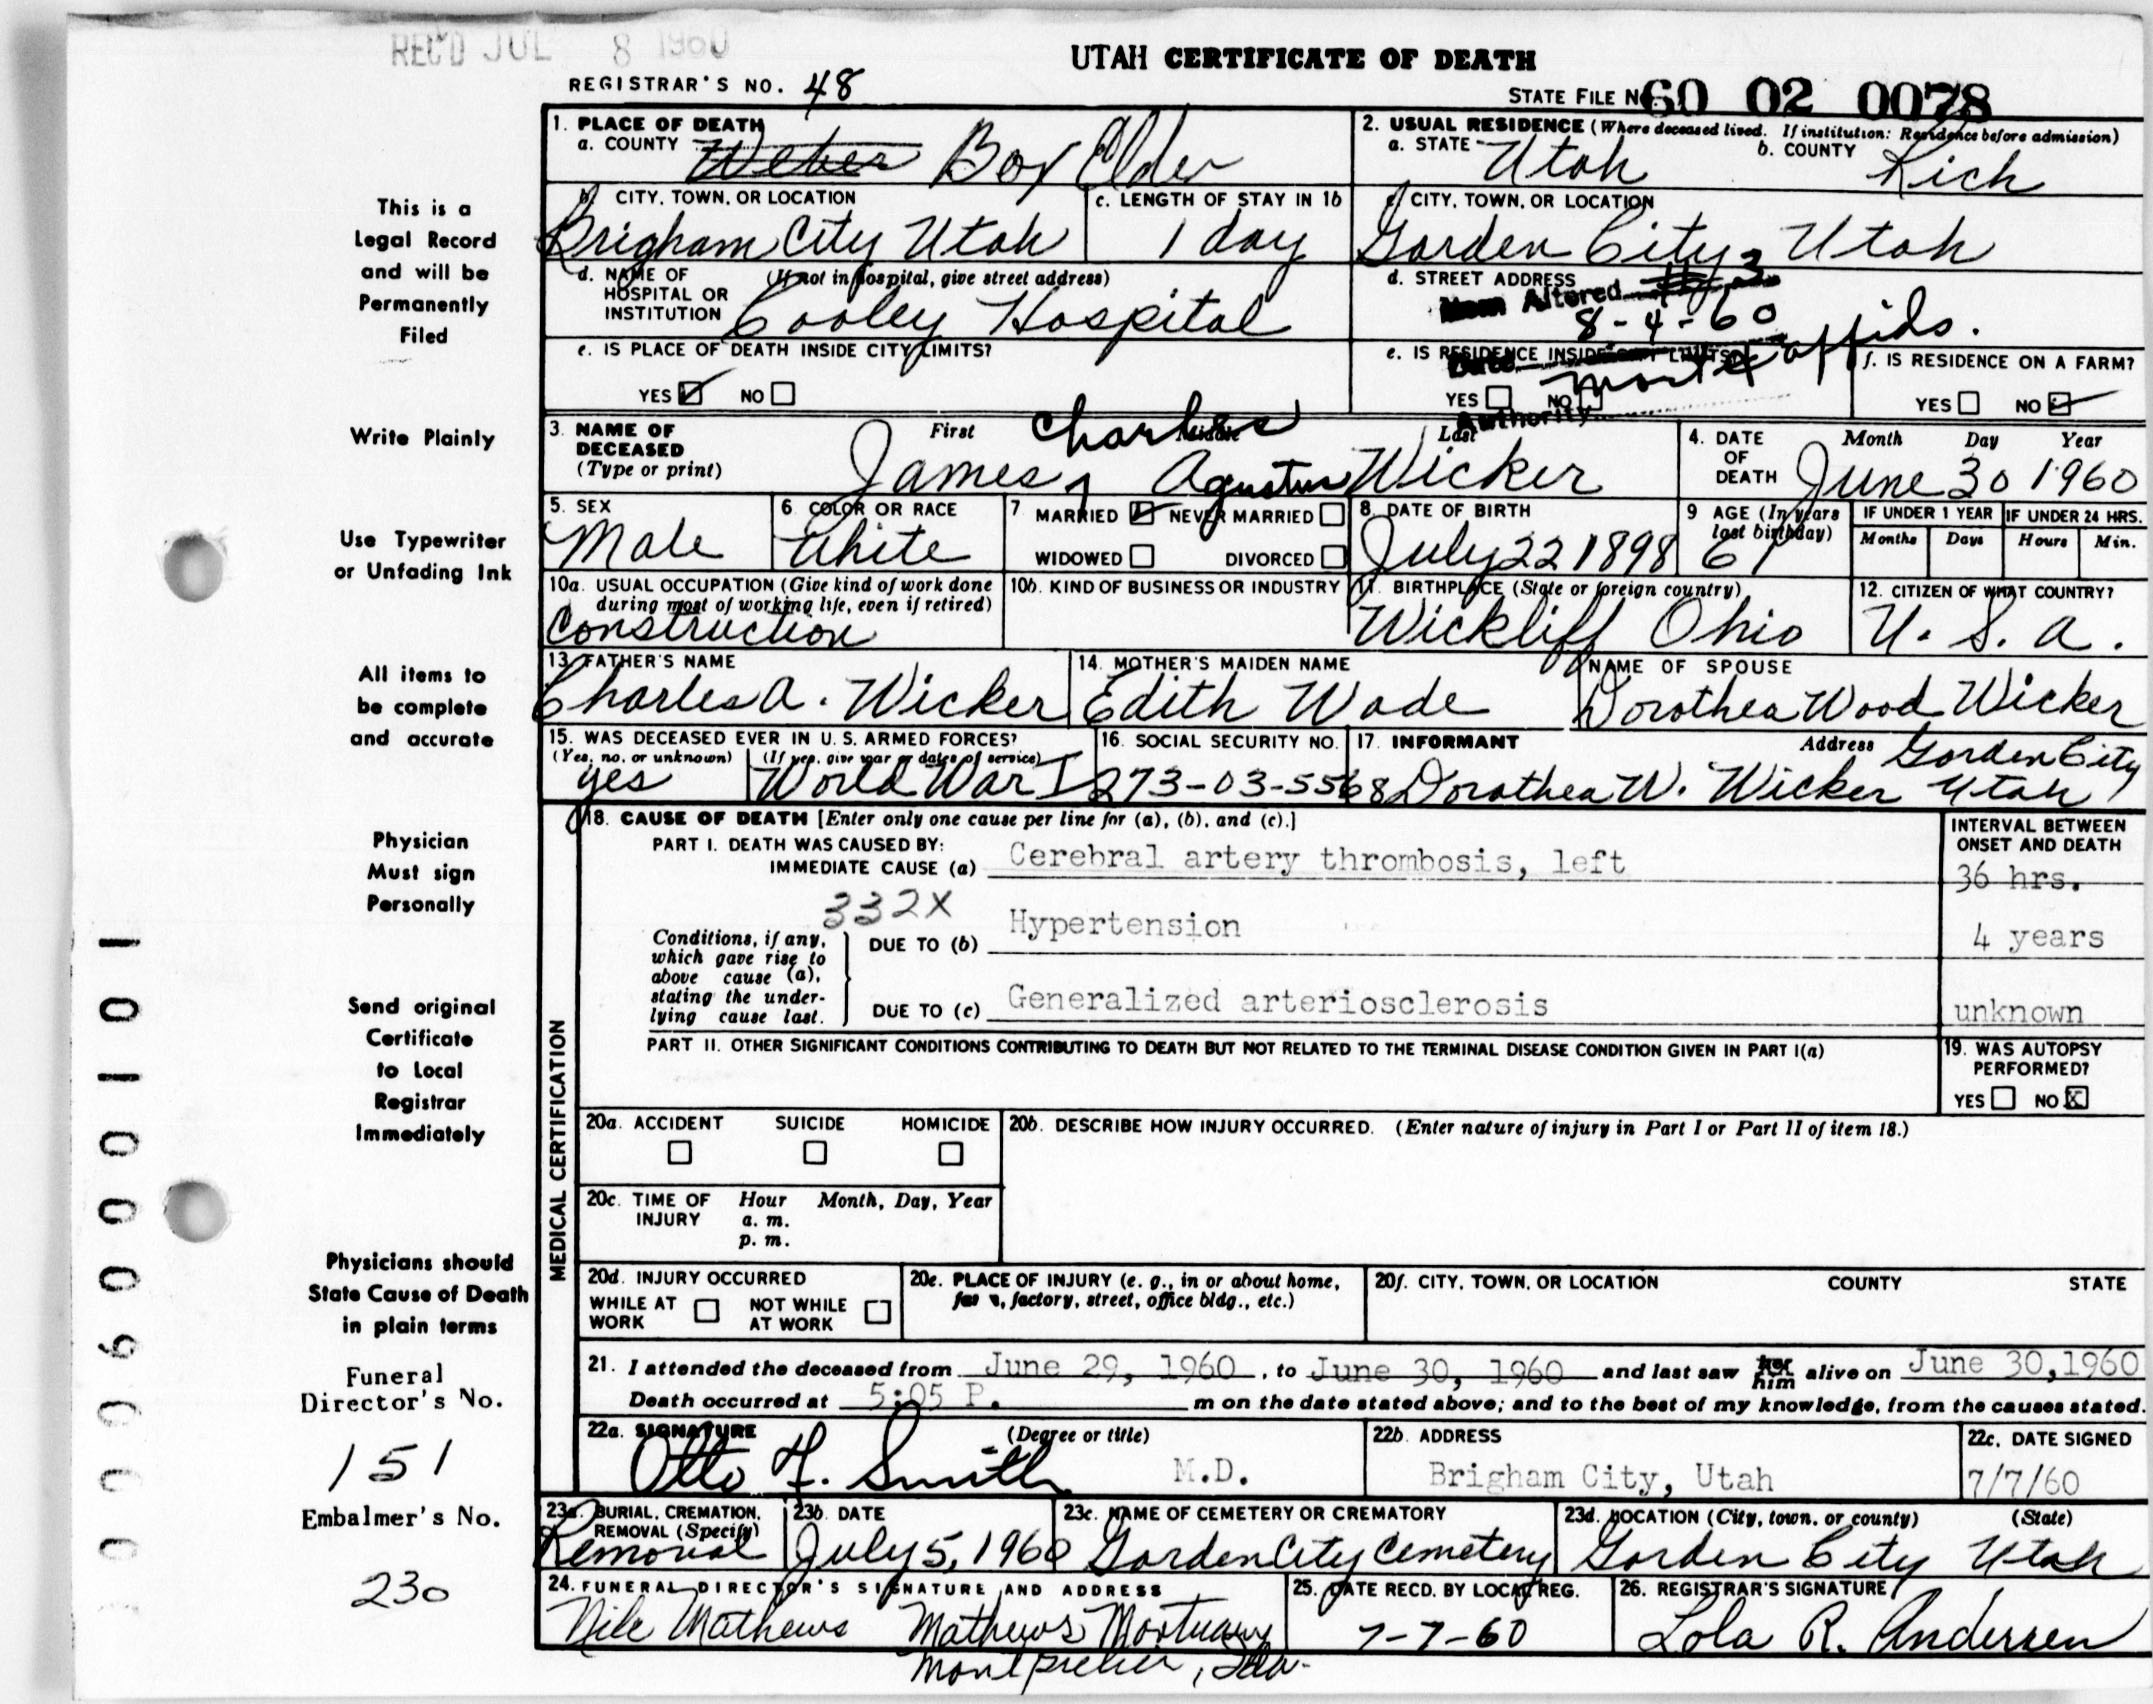 REC'D JUL 8 1960
UTAH CERTIFICATE OF DEATH
REGISTRAR'S NO. 48
STATE FILE No 60 02 0078
1. PLACE OF DEATH
a. COUNTY Weber Box Elder
2. USUAL RESIDENCE (Where deceased lived. If institution: Residence before admission)
a. STATE Utah b. COUNTY Rich
b. CITY, TOWN, OR LOCATION
Brigham City Utah
c. LENGTH OF STAY IN 1b
1 day
c. CITY, TOWN, OR LOCATION
Garden City, Utah
d. NAME OF HOSPITAL OR INSTITUTION (If not in hospital, give street address)
Cooley Hospital
d. STREET ADDRESS
Item Altered #3
8-4-60
e. IS PLACE OF DEATH INSIDE CITY LIMITS?
YES NO
e. IS RESIDENCE INSIDE CITY LIMITS?
Date
affids.
YES NO
Authority
f. IS RESIDENCE ON A FARM?
YES NO
3. NAME OF DECEASED (Type or print)
First Middle Last
Charles
James Agustus Wicker
4. DATE OF DEATH
Month Day Year
June 30 1960
5. SEX
Male
6. COLOR OR RACE
White
7. MARRIED NEVER MARRIED
WIDOWED DIVORCED
8. DATE OF BIRTH
July 22 1898
9. AGE (In years last birthday)
61
IF UNDER 1 YEAR
Months Days
IF UNDER 24 HRS.
Hours Min.
10a. USUAL OCCUPATION (Give kind of work done during most of working life, even if retired)
Construction
10b. KIND OF BUSINESS OR INDUSTRY
11. BIRTHPLACE (State or foreign country)
Wickliff Ohio
12. CITIZEN OF WHAT COUNTRY?
U. S. A.
13. FATHER'S NAME
Charles A. Wicker
14. MOTHER'S MAIDEN NAME
Edith Wade
NAME OF SPOUSE
Dorothea Wood Wicker
15. WAS DECEASED EVER IN U.S. ARMED FORCES?
(Yes, no, or unknown) (If yes, give war or dates of service)
yes World War I
16. SOCIAL SECURITY NO.
273-03-5568
17. INFORMANT Address
Dorothea W. Wicker Garden City Utah
18. CAUSE OF DEATH [Enter only one cause per line for (a), (b), and (c).]
PART I. DEATH WAS CAUSED BY:
IMMEDIATE CAUSE (a) Cerebral artery thrombosis, left
INTERVAL BETWEEN ONSET AND DEATH
36 hrs.
332X
Conditions, if any, which gave rise to above cause (a), stating the underlying cause last.
DUE TO (b) Hypertension
4 years
DUE TO (c) Generalized arteriosclerosis
unknown
PART II. OTHER SIGNIFICANT CONDITIONS CONTRIBUTING TO DEATH BUT NOT RELATED TO THE TERMINAL DISEASE CONDITION GIVEN IN PART I(a)
19. WAS AUTOPSY PERFORMED?
YES NO X
20a. ACCIDENT SUICIDE HOMICIDE
20b. DESCRIBE HOW INJURY OCCURRED. (Enter nature of injury in Part I or Part II of item 18.)
20c. TIME OF INJURY
Hour Month, Day, Year
a. m.
p. m.
20d. INJURY OCCURRED
WHILE AT WORK NOT WHILE AT WORK
20e. PLACE OF INJURY (e. g., in or about home, farm, factory, street, office bldg., etc.)
20f. CITY, TOWN, OR LOCATION COUNTY STATE
21. I attended the deceased from June 29, 1960, to June 30, 1960 and last saw her him alive on June 30, 1960
Death occurred at 5:05 P. m on the date stated above; and to the best of my knowledge, from the causes stated.
22a. SIGNATURE (Degree or title)
Otto F. Smith M.D.
22b. ADDRESS
Brigham City, Utah
22c. DATE SIGNED
7/7/60
23a. BURIAL, CREMATION, REMOVAL (Specify)
Removal
23b. DATE
July 5, 1960
23c. NAME OF CEMETERY OR CREMATORY
Garden City Cemetery
23d. LOCATION (City, town, or county) (State)
Garden City Utah
24. FUNERAL DIRECTOR'S SIGNATURE AND ADDRESS
Nile Mathews Mathews Mortuary
Montpelier, Ida.
25. DATE RECD. BY LOCAL REG.
7-7-60
26. REGISTRAR'S SIGNATURE
Lola R. Andersen
MEDICAL CERTIFICATION
This is a
Legal Record
and will be
Permanently
Filed
Write Plainly
Use Typewriter
or Unfading Ink
All items to
be complete
and accurate
Physician
Must sign
Personally
Send original
Certificate
to Local
Registrar
Immediately
Physicians should
State Cause of Death
in plain terms
Funeral
Director's No.
151
Embalmer's No.
230